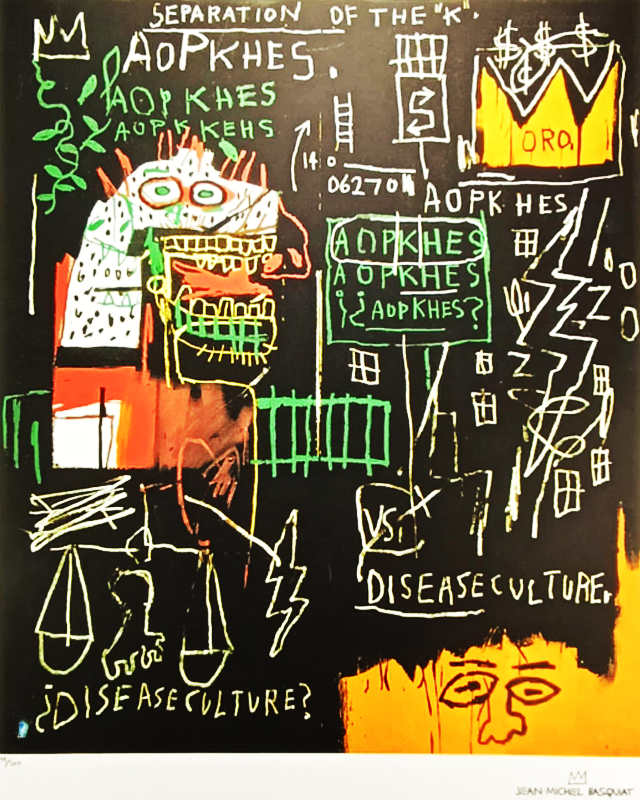 SEPARATION OF THE "K".
AOPKHES.
AOPKHES
AOPKKEHS
$ $ $
$
S
ORO.
14
06270
AOPKHES
AOPKHES
AOPKHES
¡¿AOPKHES?
VS.
DISEASECULTURE.
¿DISEASECULTURE?
JEAN-MICHEL BASQUIAT